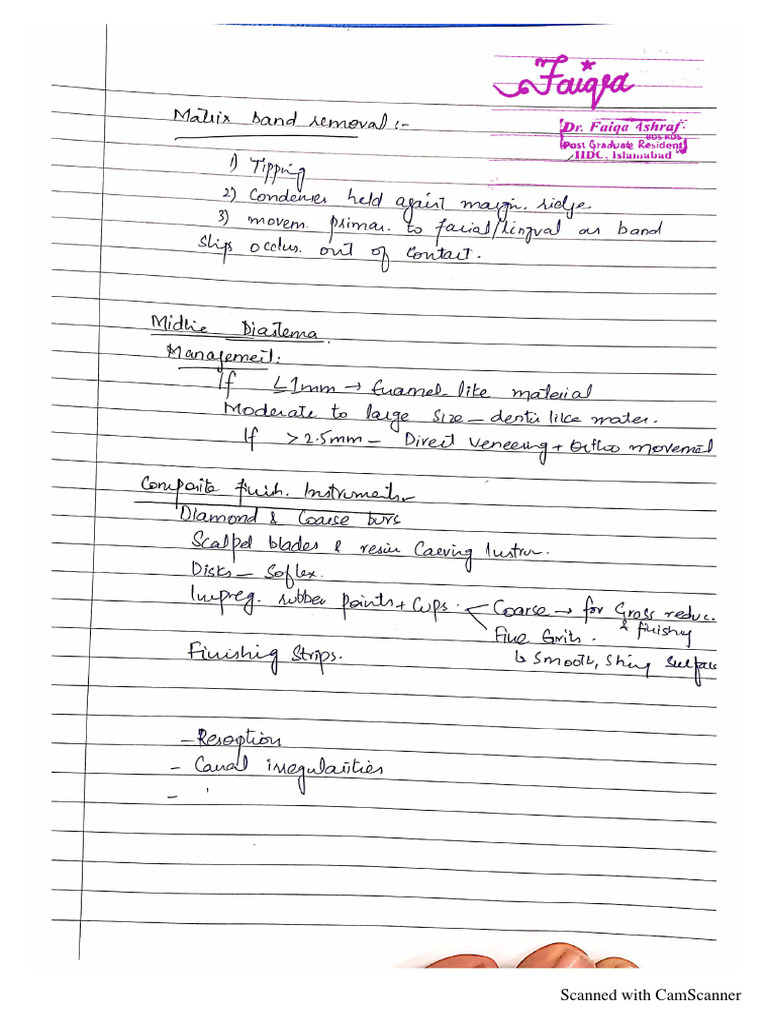 Faiqa
Dr. Faiqa Ashraf
BDS RDS
Post Graduate Resident
IIDC, Islamabad
Matrix band removal :-
1) Tipping
2) Condenser held against margin. ridge
3) movem. primar. to facial/lingual as band
slips occlus. out of contact.
Midline Diastema
Management:
If ≤1mm → Enamel-like material
Moderate to large size – dentin like mater.
If >2.5mm – Direct veneering + Ortho movement
Composite finish. Instruments
Diamond & Coarse burs
Scalpel blades & resin Carving Instrum.
Disks – Soflex.
Impreg. rubber points + Cups. Coarse → for Gross reduc.
& finishing
Fine Grits.
↳ Smooth, Shiny surface
Finishing Strips.
- Resoption
- Canal irregularities
-
Scanned with CamScanner